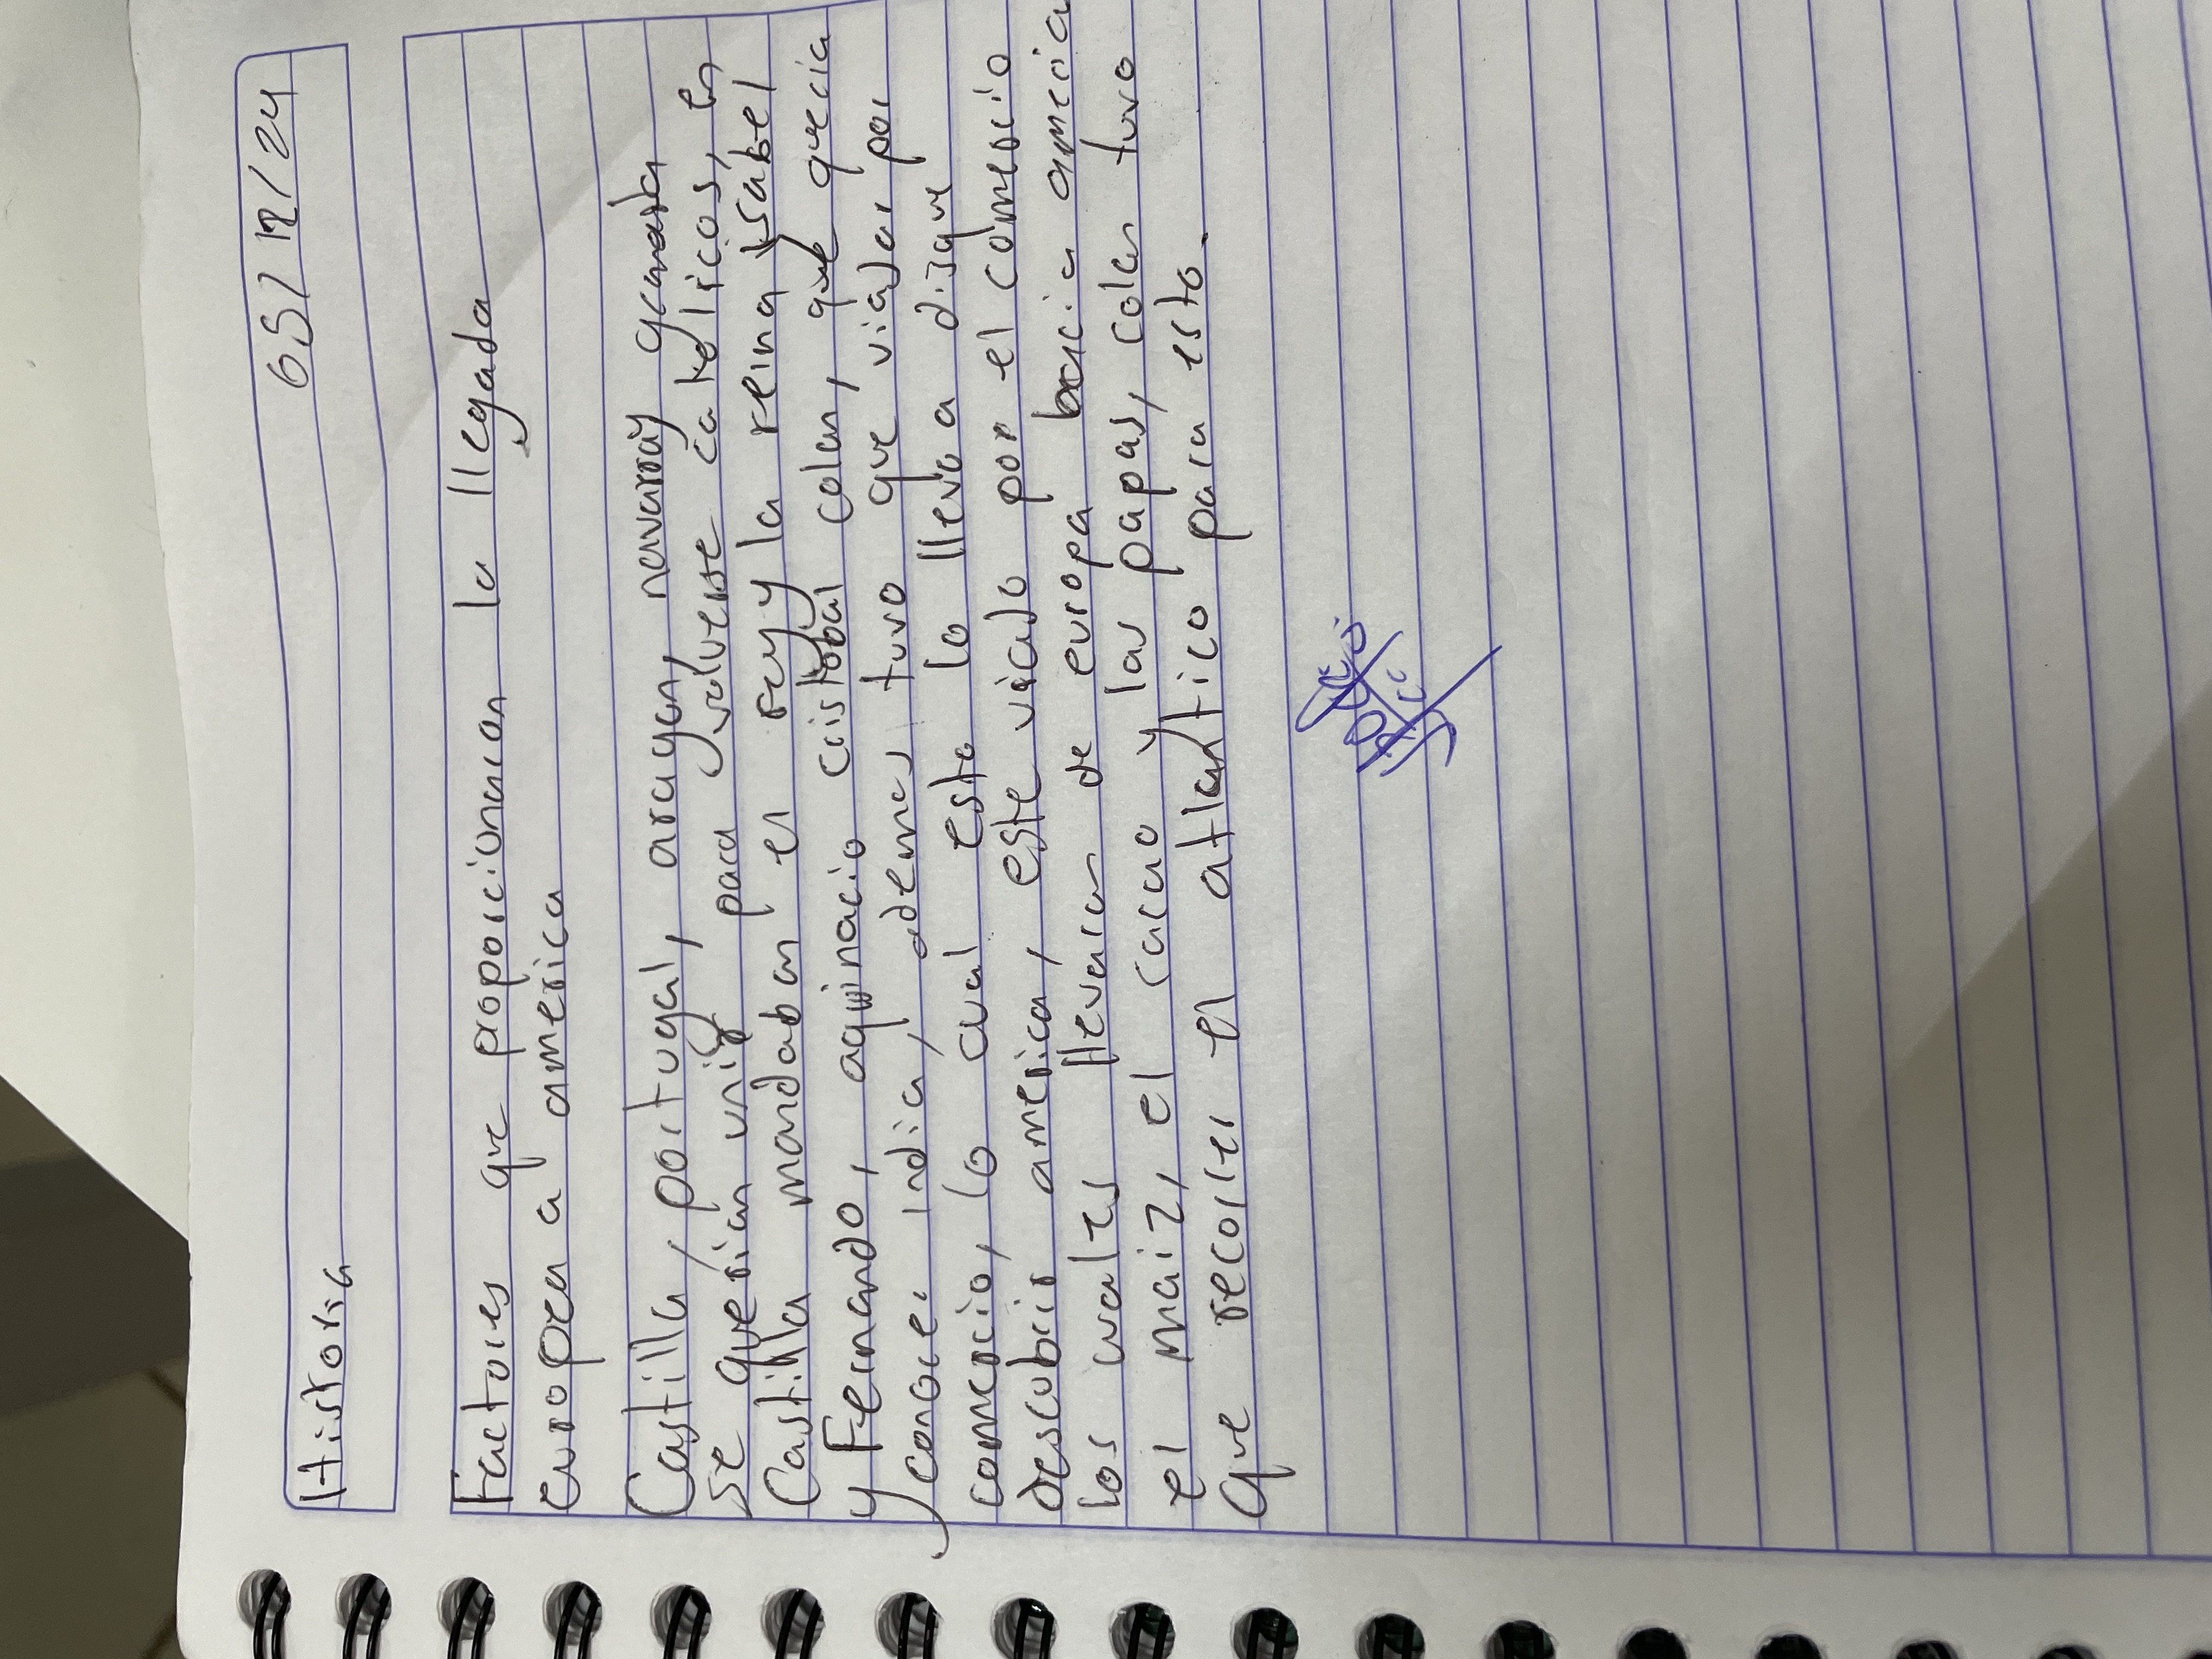 Historia
05/12/24
Factores que proporcionaron la llegada
europea a america
Castilla, portugal, aragon, navarra y granada
se querian unir para volverse catolicos, en
Castilla mandaban el rey y la reina Isabel
y Fernando, aqui nacio cristobal colon, que queria
conocer india, ademas tuvo que viajar por
comercio, lo cual esto lo llevo a disque
descubrir america, este viajo por el comercio
los cuales llevaron de europa hacia america
el maiz, el cacao y las papas, colon tuvo
que recorrer el atlantico para esto.